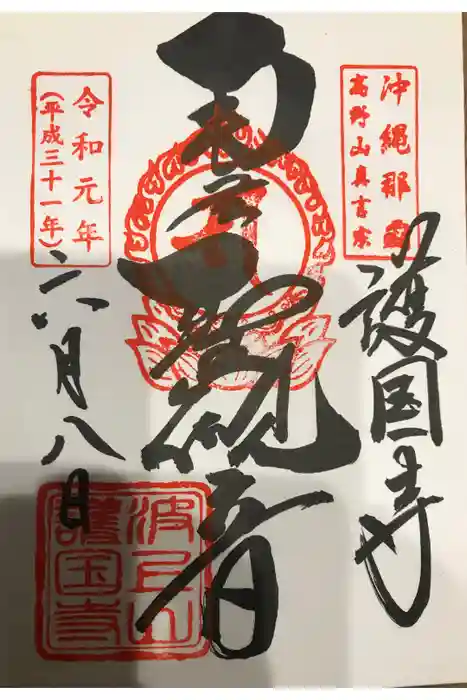 沖縄那覇
高野山真言宗
護国寺
南無聖観音
令和元年
（平成三十一年）
六月八日
波上山
護国寺